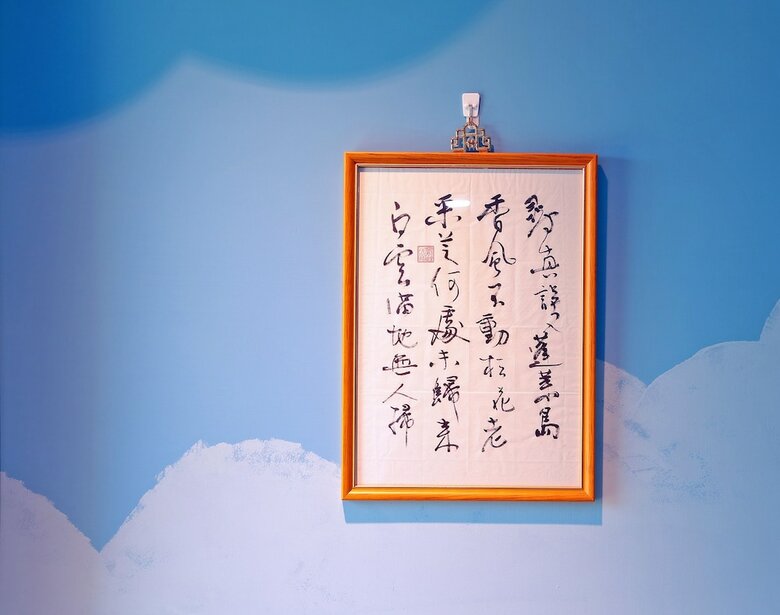 尋真誤入蓬莱島
香風不動松花老
采芝何處未歸来
白雲滿地無人掃